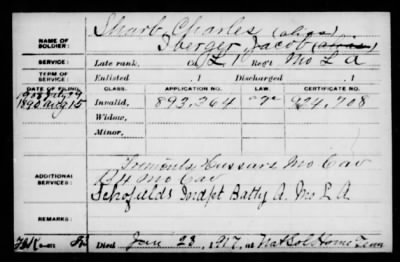 NAME OF SOLDIER: Sharb, Charles (alias)
Sberger, Jacob (alias)
SERVICE: Late rank, Co. L 1 Reg't Mo L A
TERM OF SERVICE: Enlisted , 1 Discharged , 1
DATE OF FILING. CLASS. APPLICATION NO. LAW. CERTIFICATE NO.
1890 Aug 15 Invalid, 893,264 924,708
Widow,
Minor,
Fremonts Hussars Mo Cav
ADDITIONAL SERVICES: Mo Cav
Schofields Indpt Batty A. Mo L A
REMARKS:
Died Jan 23, 1917, at Nat Sol Home Tenn